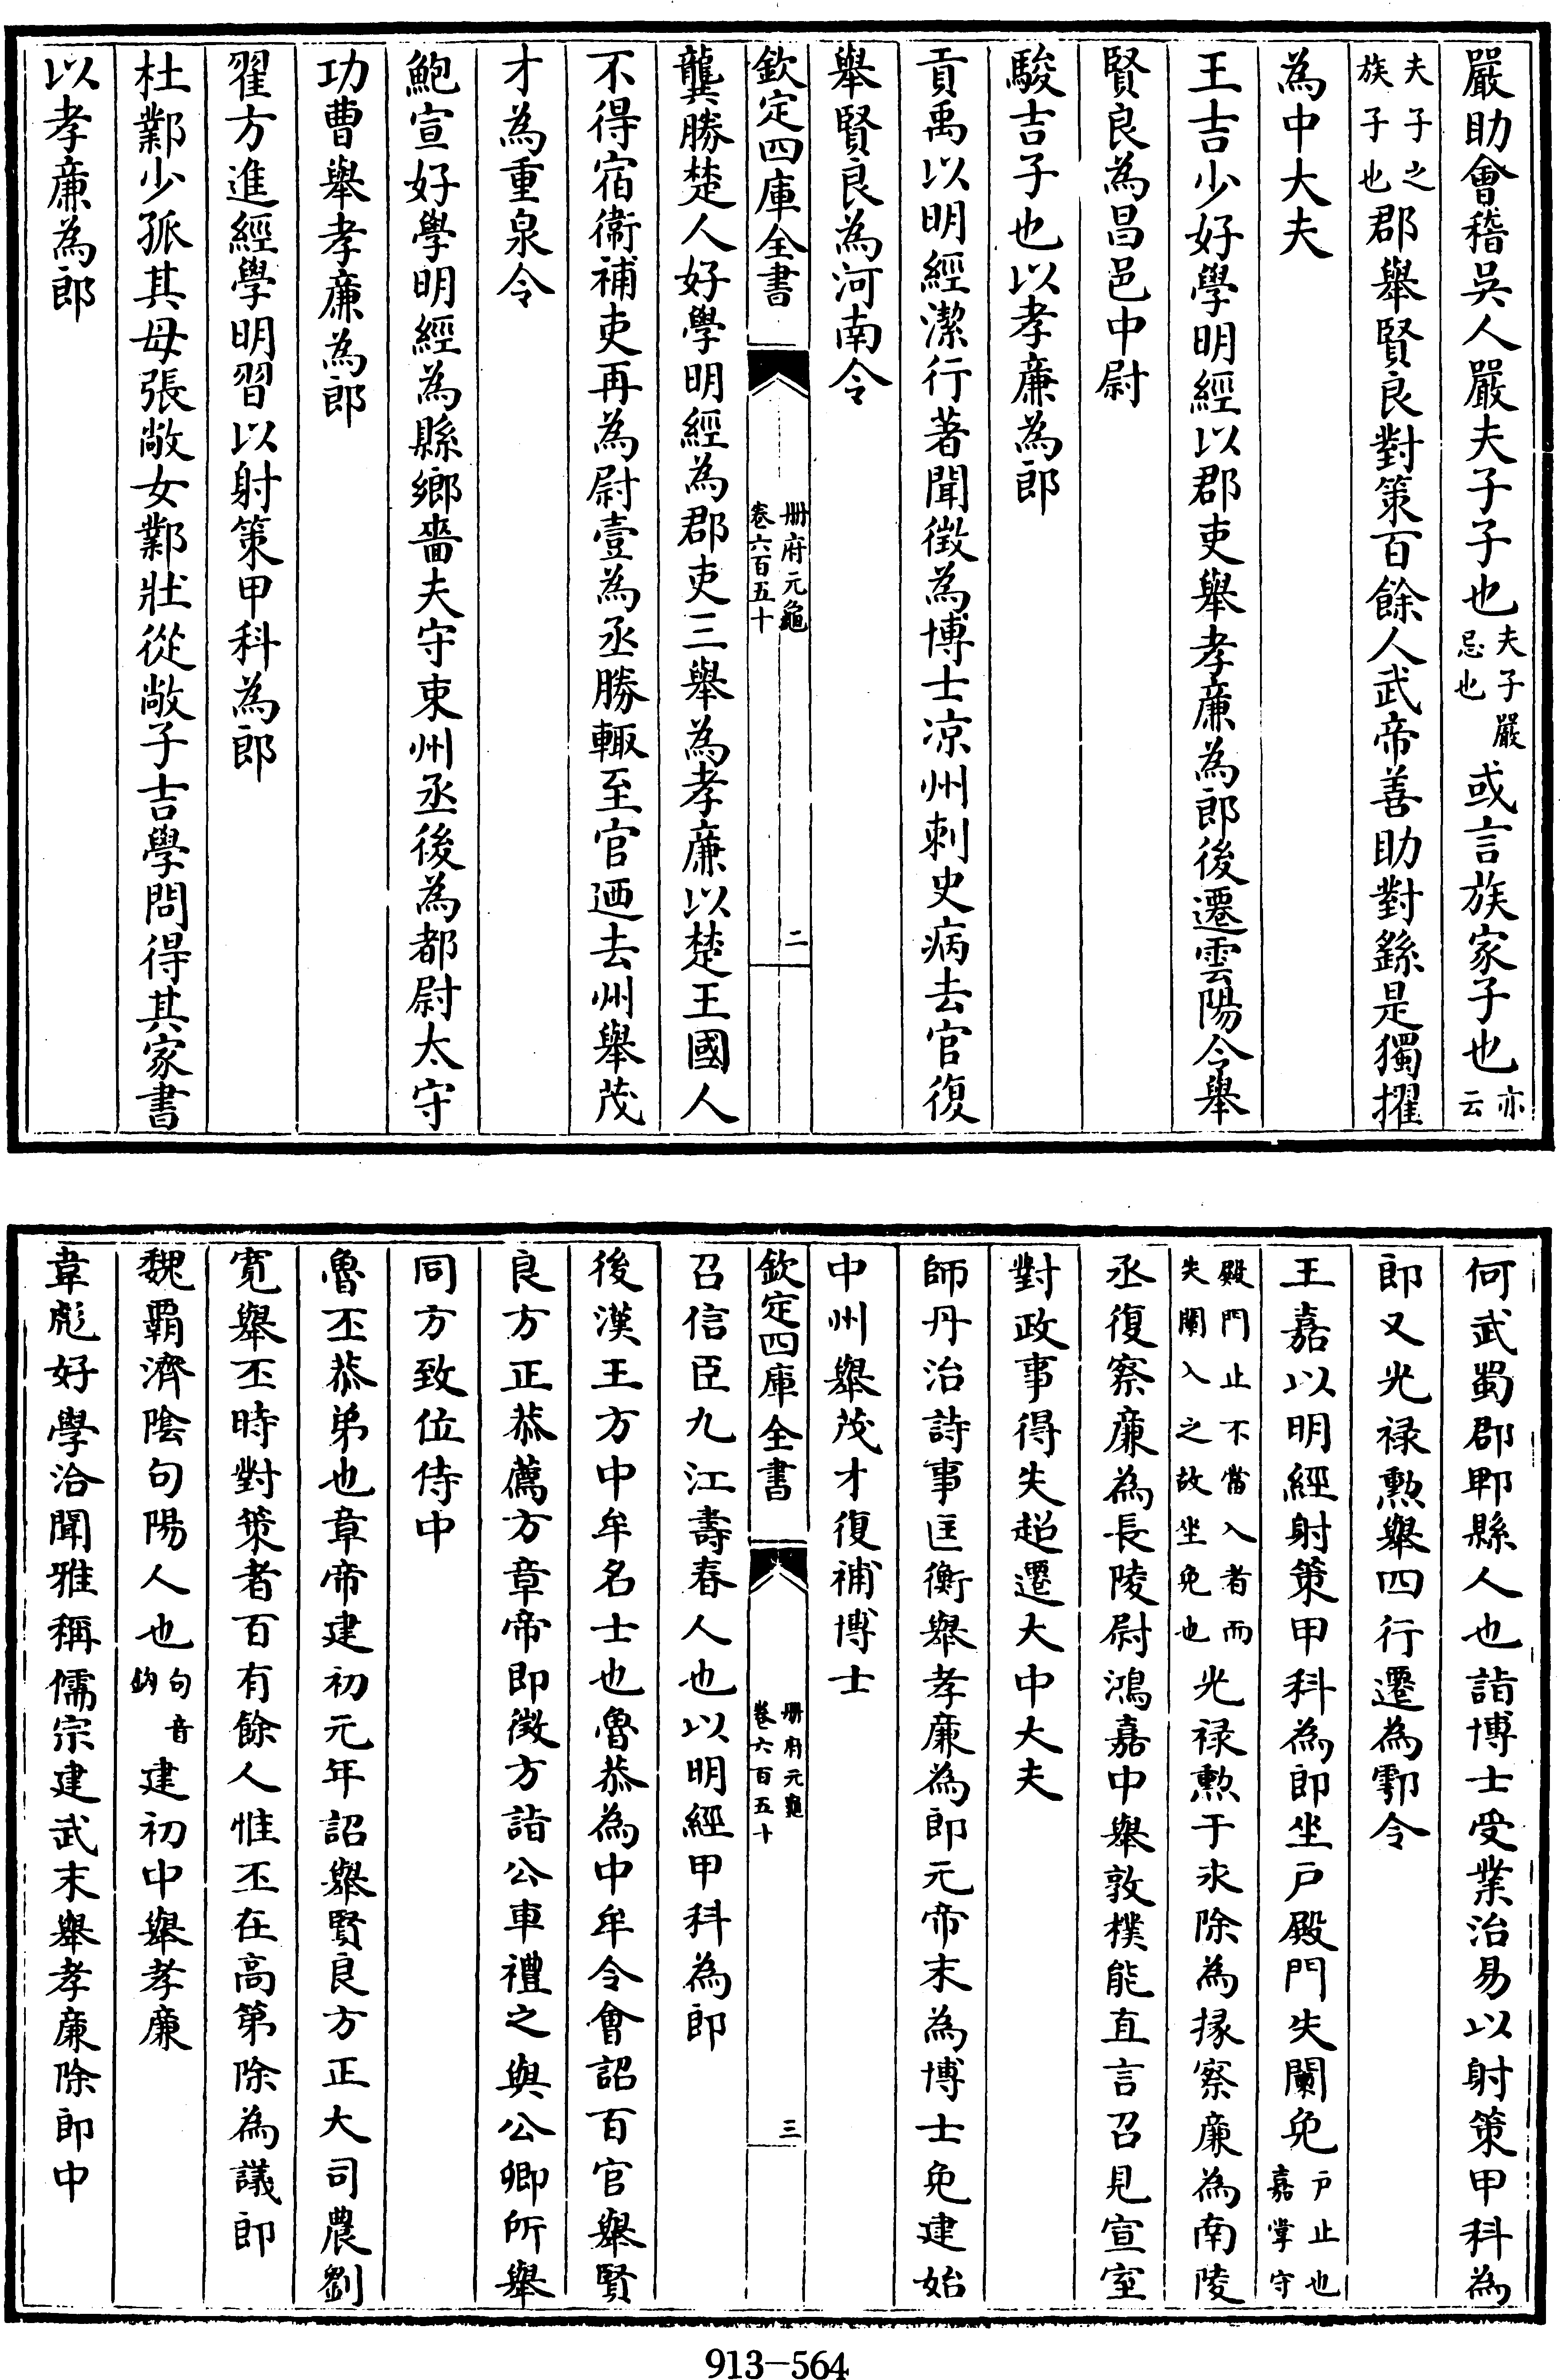 嚴助會稽吳人嚴夫子子也夫子嚴忌也或言族家子也亦云
夫子之族子也郡舉賢良對策百餘人武帝善助對繇是獨擢
為中大夫
王吉少好學明經以郡吏舉孝廉為郎後遷雲陽令舉
賢良為昌邑中尉
駿吉子也以孝廉為郎
貢禹以明經潔行著聞徵為博士涼州刺史病去官復
舉賢良為河南令
欽定四庫全書 冊府元龜 卷六百五十 二
龔勝楚人好學明經為郡吏三舉為孝廉以楚王國人
不得宿衛補吏再為尉壹為丞勝輙至官廼去州舉茂
才為重泉令
鮑宣好學明經為縣鄉嗇夫守束州丞後為都尉太守
功曹舉孝廉為郎
翟方進經學明習以射策甲科為郎
杜鄴少孤其母張敞女鄴壯從敞子吉學問得其家書
以孝廉為郎
何武蜀郡郫縣人也詣博士受業治易以射策甲科為
郎又光禄勲舉四行遷為鄠令
王嘉以明經射策甲科為郎坐戸殿門失闌免戸止也嘉掌守
殿門止不當入者而失闌入之故坐免也光禄勲于永除為掾察廉為南陵
丞復察廉為長陵尉鴻嘉中舉敦樸能直言召見宣室
對政事得失超遷大中大夫
師丹治詩事匡衡舉孝廉為郎元帝末為博士免建始
中州舉茂才復補博士
欽定四庫全書 冊府元龜 卷六百五十 三
召信臣九江壽春人也以明經甲科為郎
後漢王方中牟名士也魯恭為中牟令會詔百官舉賢
良方正恭薦方章帝即徵方詣公車禮之與公卿所舉
同方致位侍中
魯丕恭弟也章帝建初元年詔舉賢良方正大司農劉
寛舉丕時對策者百有餘人惟丕在高第除為議郎
魏霸濟陰句陽人也句音鈎建初中舉孝廉
韋彪好學洽聞雅稱儒宗建武末舉孝廉除郎中
913-564